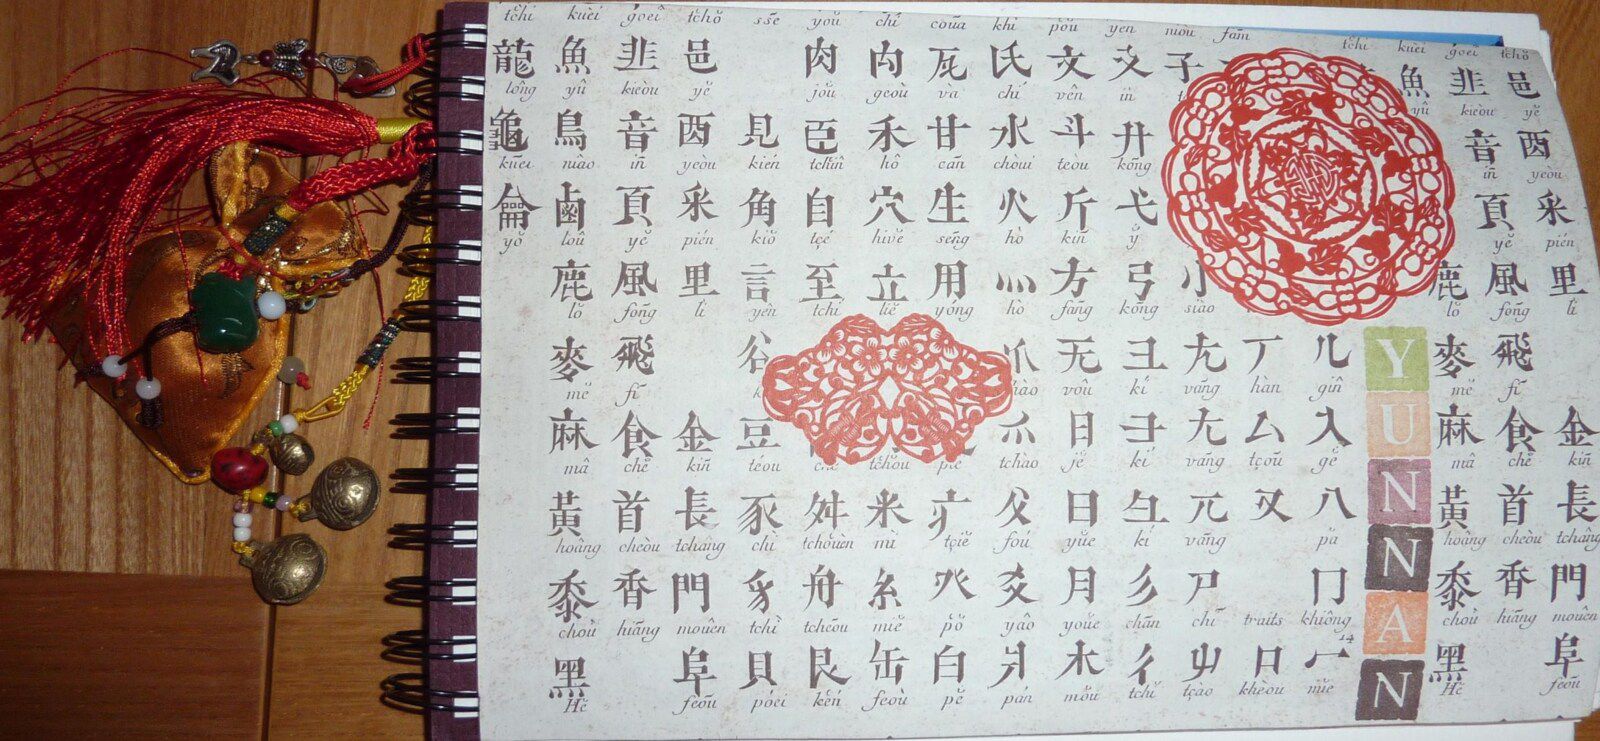 tchi kuèi goei tchŏ ssē yoŭ chí coūa khi pŏu yen niòu fam tchi kuèi goei tchŏ
龍 魚 韭 邑 肉 禸 瓦 氏 文 文 子 魚 韭 邑
lông yû kieòu yĕ joŭ geoù va chí vên in yû kieòu yĕ
龜 鳥 音 酉 見 臣 禾 甘 水 斗 廾 音 酉
kūei niào iñ yeòu kién tchiñ hô cañ chòui teòu kòng iñ yeòu
龠 鹵 頁 釆 角 自 穴 生 火 斤 弋 頁 釆
yŏ loû yĕ pién kiŏ tçé hivĕ señg hò kiñ ў yĕ pién
鹿 風 里 言 至 立 用 灬 方 弓 小 鹿 風 里
lŏ foñg lì yên tchí liĕ yong hò fāng kōng siào lŏ foñg lì
麥 飛 谷 爪 无 彑 尢 丁 儿 Y 麥 飛
mĕ fī hào voû kí vāng hàn gin mĕ fī
麻 食 金 豆 爫 日 彐 尢 厶 入 U 麻 食 金
mâ chĕ kiñ téou tchŏu piĕ tchào jĕ kí vāng tçoū gĕ mâ chĕ kiñ
黃 首 長 豕 舛 米 疒 父 曰 彑 兀 又 八 N 黃 首 長
hoâng cheòu tchâng chì tchŏuèn mì tçiĕ foú yŭe kí vāng pa hoâng cheòu tchâng
黍 香 門 豸 舟 糸 癶 爻 月 彡 尸 冂 N 黍 香 門
choù hiāng mouên tchì tcheōu miĕ pŏ yâo yoŭe chān chī traits khiōng choù hiāng mouên
14
A
黑 阜 貝 艮 缶 白 爿 木 彳 屮 口 亠 N 黑 阜
Hĕ feōu póei kén feoù pĕ pán moŭ tchĭ tçào kheòu miĕ Hĕ feōu